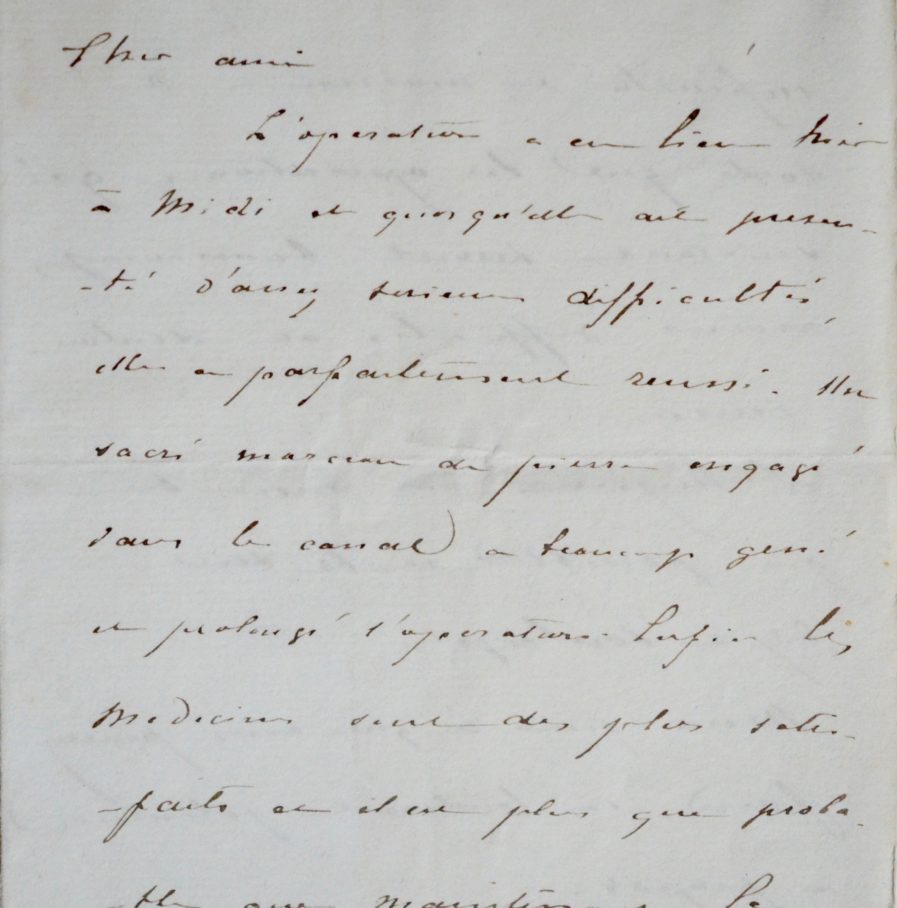 Cher ami
L'operation a eu lieu hier
à Midi et quoiqu'elle ait presen-
-té d'assez serieuses difficultés,
elle a parfaitement reussi. Un
sacré morceau de pierre engagé
dans le canal a beaucoup gené
et prolongé l'operation. Enfin les
Medecins sont des plus satis-
-faits et il est plus que proba-
-ble que maintenant la